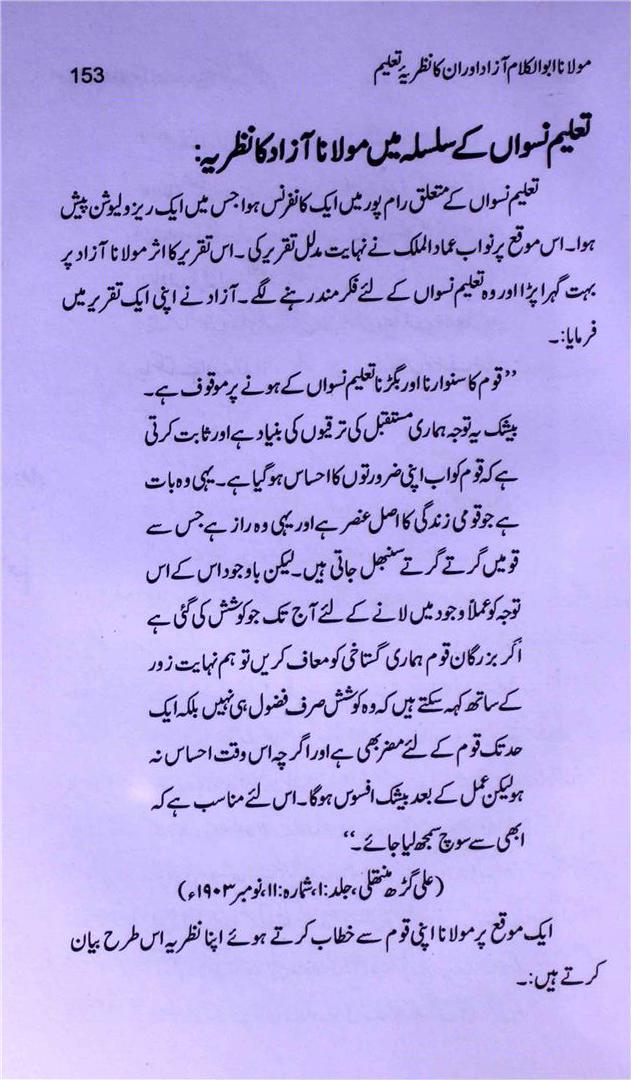 مولانا ابوالکلام آزاد اور ان کا نظریۂ تعلیم
153
تعلیم نسواں کے سلسلہ میں مولانا آزاد کا نظریہ:
تعلیم نسواں کے متعلق رام پور میں ایک کانفرنس ہوا جس میں ایک ریزولیوشن پیش
ہوا۔ اس موقع پر نواب عماد الملک نے نہایت مدلل تقریر کی۔ اس تقریر کا اثر مولانا آزاد پر
بہت گہرا پڑا اور وہ تعلیم نسواں کے لئے فکر مند رہنے لگے۔ آزاد نے اپنی ایک تقریر میں
فرمایا:۔
”قوم کا سنوارنا اور بگڑنا تعلیم نسواں کے ہونے پر موقوف ہے۔
بیشک یہ توجہ ہماری مستقبل کی ترقیوں کی بنیاد ہے اور ثابت کرتی
ہے کہ قوم کو اب اپنی ضرورتوں کا احساس ہو گیا ہے۔ یہی وہ بات
ہے جو قومی زندگی کا اصل عنصر ہے اور یہی وہ راز ہے جس سے
قومیں گرتے گرتے سنبھل جاتی ہیں۔ لیکن باوجود اس کے اس
توجہ کو عملاً وجود میں لانے کے لئے آج تک جو کوشش کی گئی ہے
اگر بزرگان قوم ہماری گستاخی کو معاف کریں تو ہم نہایت زور
کے ساتھ کہہ سکتے ہیں کہ وہ کوشش صرف فضول ہی نہیں بلکہ ایک
حد تک قوم کے لئے مضر بھی ہے اور اگرچہ اس وقت احساس نہ
ہو لیکن عمل کے بعد بیشک افسوس ہوگا۔ اس لئے مناسب ہے کہ
ابھی سے سوچ سمجھ لیا جائے۔“
(علی گڑھ منتھلی، جلد:۱، شمارہ:۱۱، نومبر ۱۹۰۳ء)
ایک موقع پر مولانا اپنی قوم سے خطاب کرتے ہوئے اپنا نظریہ اس طرح بیان
کرتے ہیں:۔